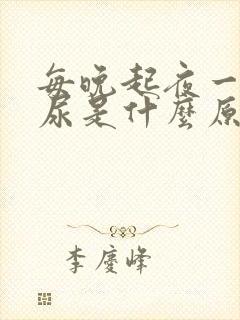 每晚起夜一
尿是什麼原
李慶峰